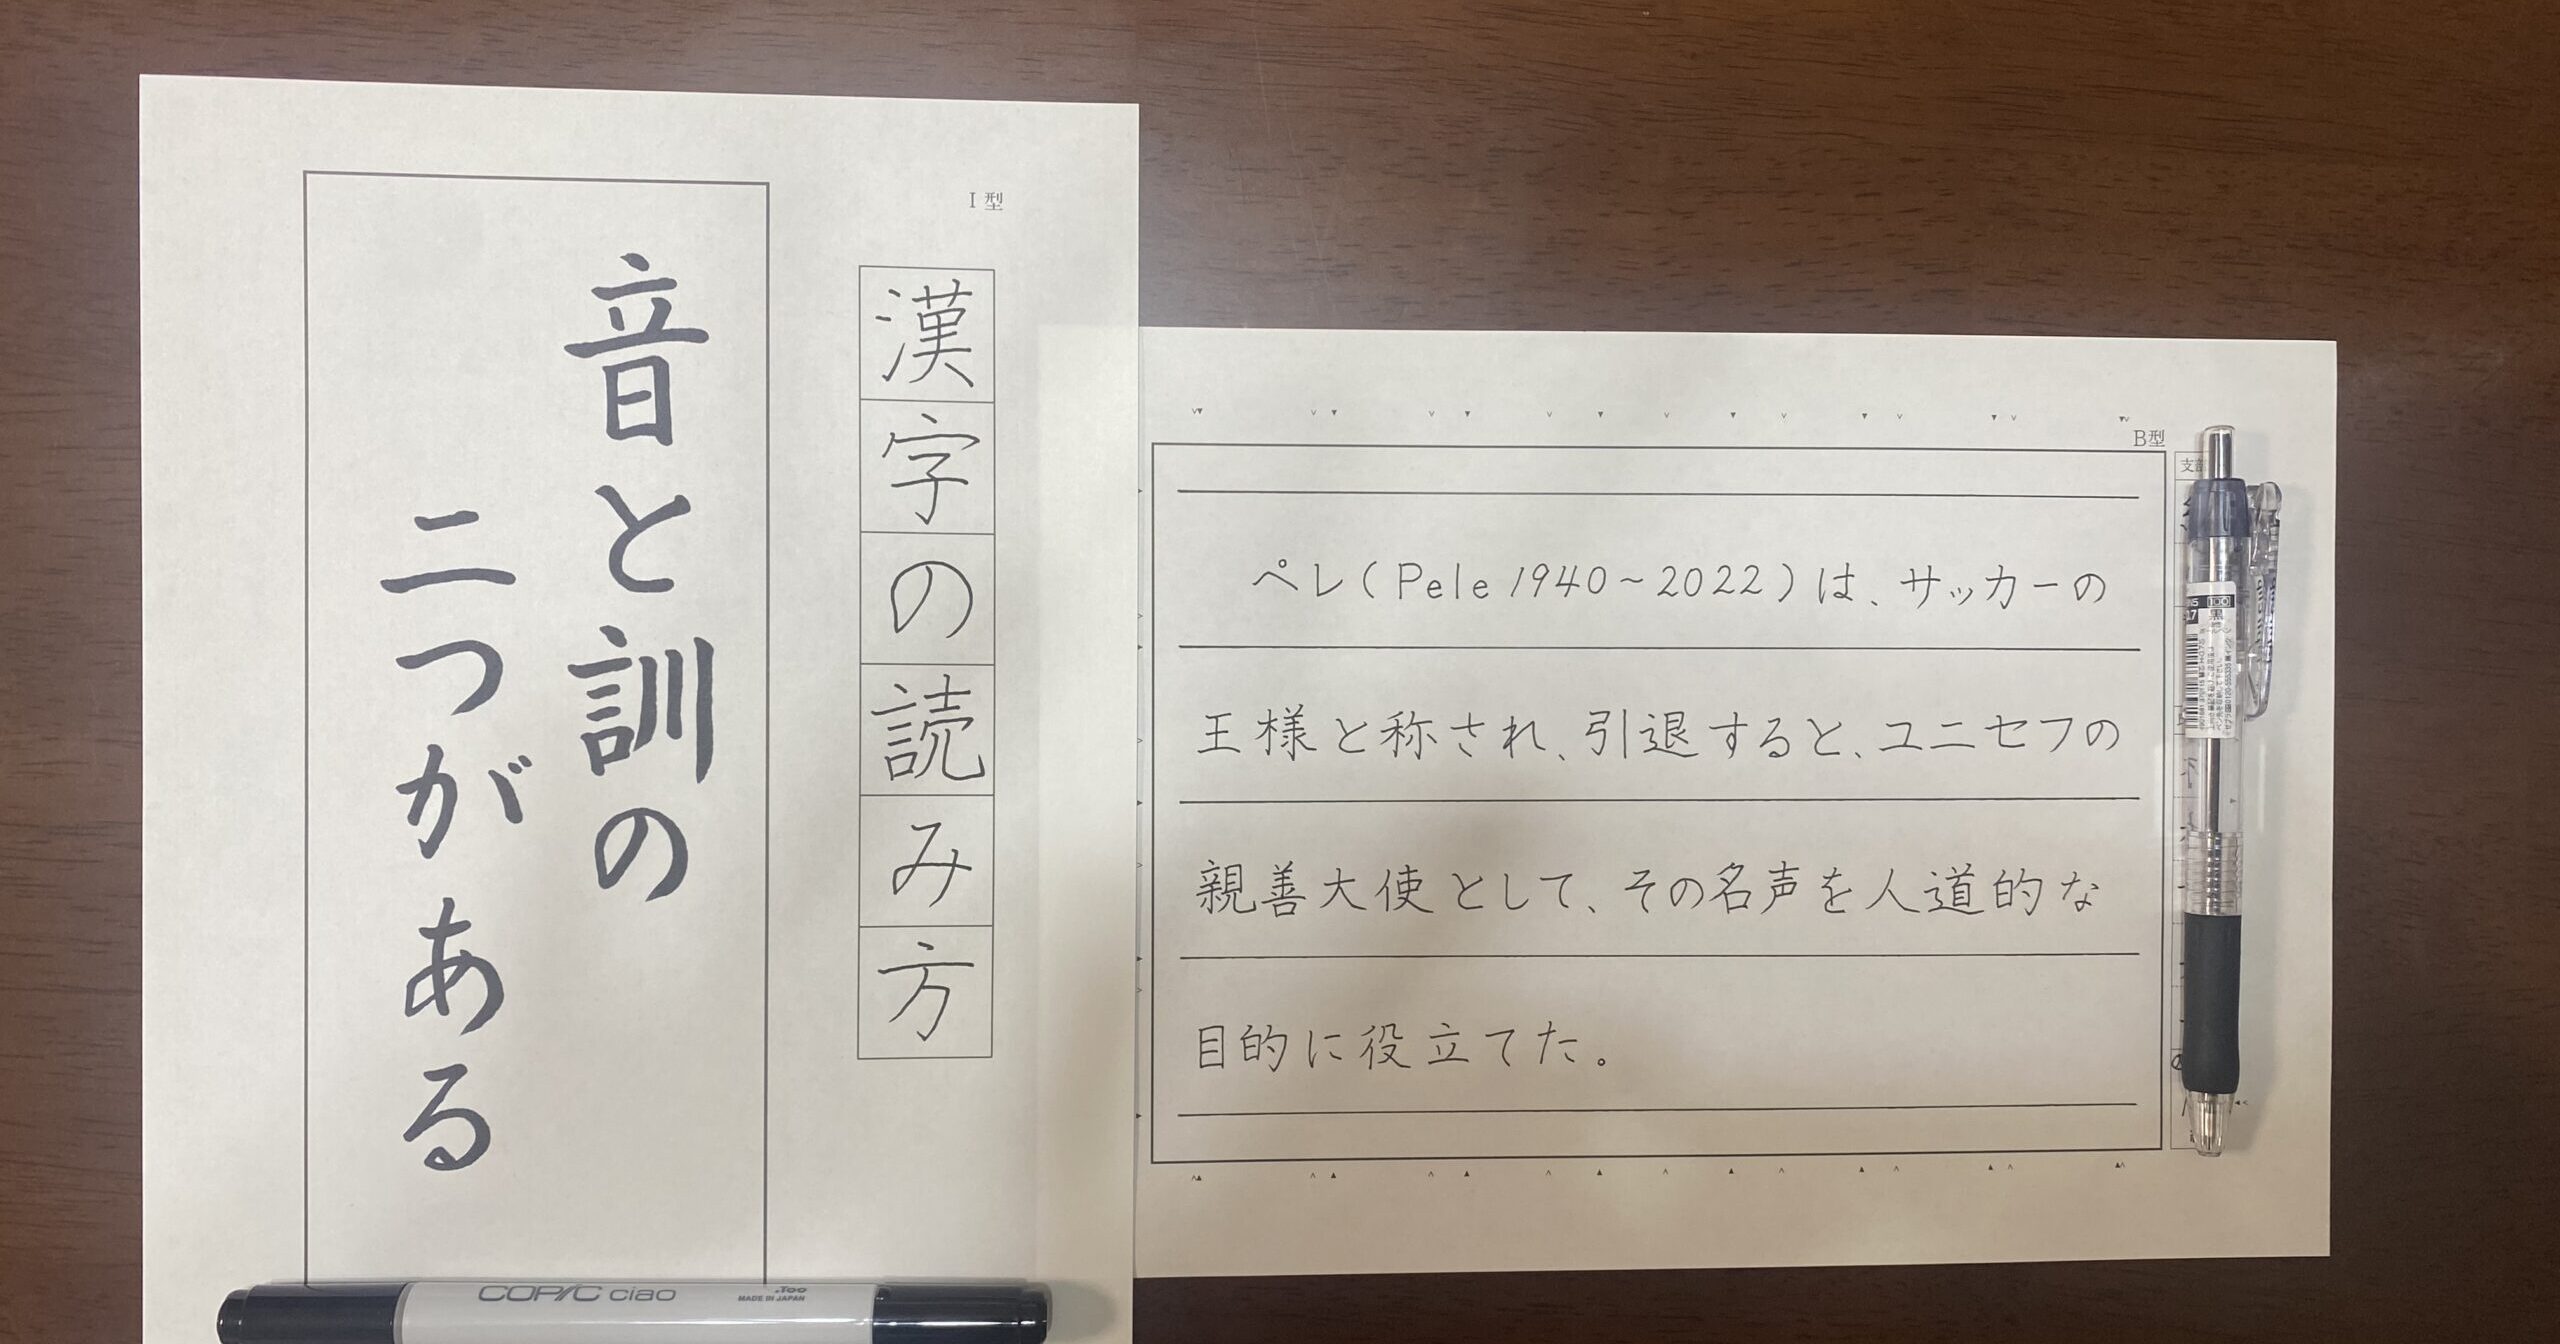 I型
漢字の読み方
音と訓の
二つがある
COPIC ciao
.Too
MADE IN JAPAN
B型
ペレ(Pele 1940~2022)は、サッカーの
王様と称され、引退すると、ユニセフの
親善大使として、その名声を人道的な
目的に役立てた。
支部